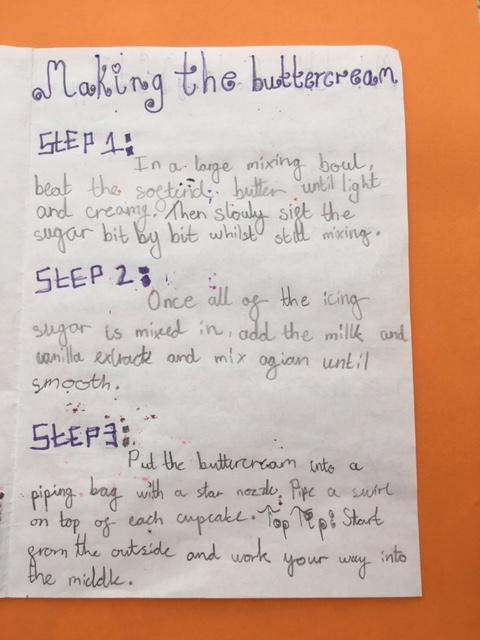 Making the buttercream
STEP 1:
In a large mixing boul,
beat the softind, butter until light
and creamy. Then slouly sift the
sugar bit by bit whilst still mixing.
STEP 2:
Once all of the icing
sugar is mixed in, add the milk and
vanilla extract and mix agian until
smooth.
STEP3:
Put the buttercream into a
piping bag with a star nozzle. Pipe a swirl
on top of each cupcake. Top Tip: Start
from the outside and work your way into
the middle.